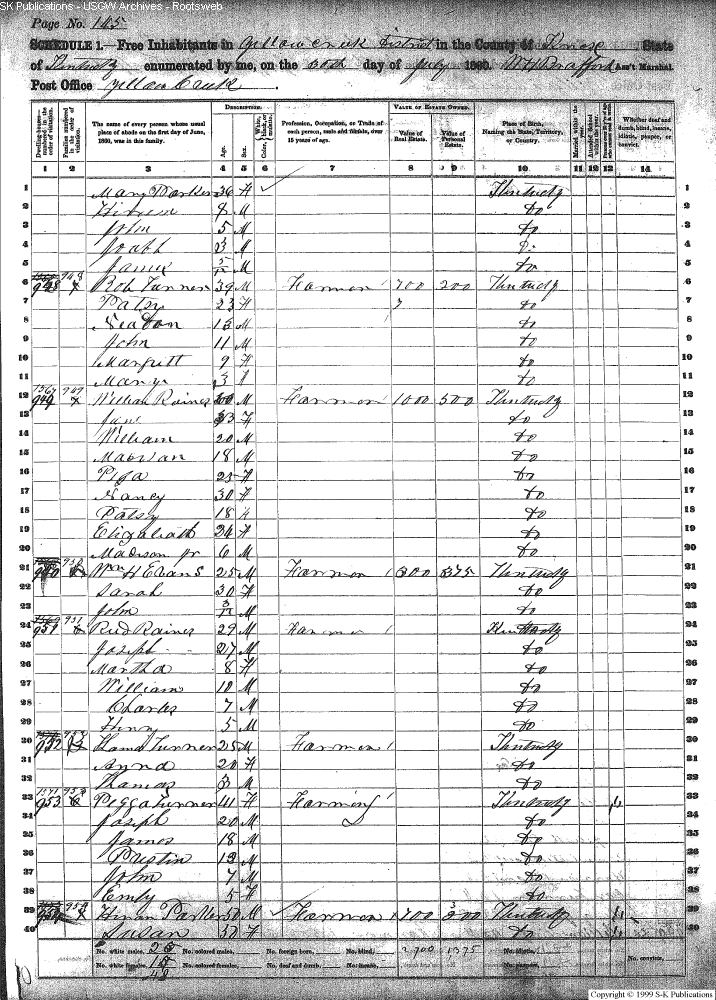 SK Publications - USGW Archives - Rootsweb
Page No. 145
SCHEDULE 1.—Free Inhabitants in Yellow Creek District in the County of Knox State
of Kentucky enumerated by me, on the 30th day of July 1860. Ass't Marshal.
Post Office Yellow Creek
Dwelling-houses—numbered in the order of visitation.
Families numbered in the order of visitation.
The name of every person whose usual place of abode on the first day of June, 1860, was in this family.
DESCRIPTION.
Age.
Sex.
Color, White, black, or mulatto.
Profession, Occupation, or Trade of each person, male and female, over 15 years of age.
VALUE OF ESTATE OWNED.
Value of Real Estate.
Value of Personal Estate.
Place of Birth, Naming the State, Territory, or Country.
Married within the year.
Attended School within the year.
Whether deaf and dumb, blind, insane, idiotic, pauper, or convict.
1 2 3 4 5 6 7 8 9 10 11 12 13 14
1 Mary Parker 36 F Kentucky 1
2 8 M do 2
3 John 5 M do 3
4 Joabh 3 M do 4
5 James 5/12 M do 5
6 948 Rob Turner 39 M Farmer 700 200 Kentucky 6
7 Patsy 23 F do 7
8 13 M do 8
9 John 11 M do 9
10 Margrett 9 F do 10
11 3 do 11
12 949 William Raines 60 M Farmer 1000 500 Kentucky 12
13 Jane F do 13
14 William 20 M do 14
15 18 M do 15
16 25 F do 16
17 Nancy 30 F do 17
18 Patsy 18 F do 18
19 Elizabeth 24 F do 19
20 Madison jr 6 M do 20
21 950 Wm H Evans 25 M Farmer 300 375 Kentucky 21
22 Sarah 30 F do 22
23 John M do 23
24 951 Red Raines 29 M Farmer Kentucky 24
25 Joseph 27 M do 25
26 Martha 8 F do 26
27 William 10 M do 27
28 Charles 7 M do 28
29 Henry 5 M do 29
30 952 Turner 25 M Farmer Kentucky 30
31 Anna 20 F do 31
32 Thomas 3 M do 32
33 953 Pegga Turner 41 F Farming Kentucky 33
34 Joseph 20 M do 34
35 James 18 M do 35
36 Preston 13 M do 36
37 John 7 M do 37
38 Emily 5 F do 38
39 954 Hiram Parker 50 M Farmer 700 Kentucky 39
40 Susan 50 F do 40
No. white males, No. colored males, No. foreign born, No. blind, 2,700 1375 No. idiotic, No. convicts,
No. white females, 15 No. colored females, No. deaf and dumb, No. insane, No. paupers,
Copyright © 1999 S-K Publications